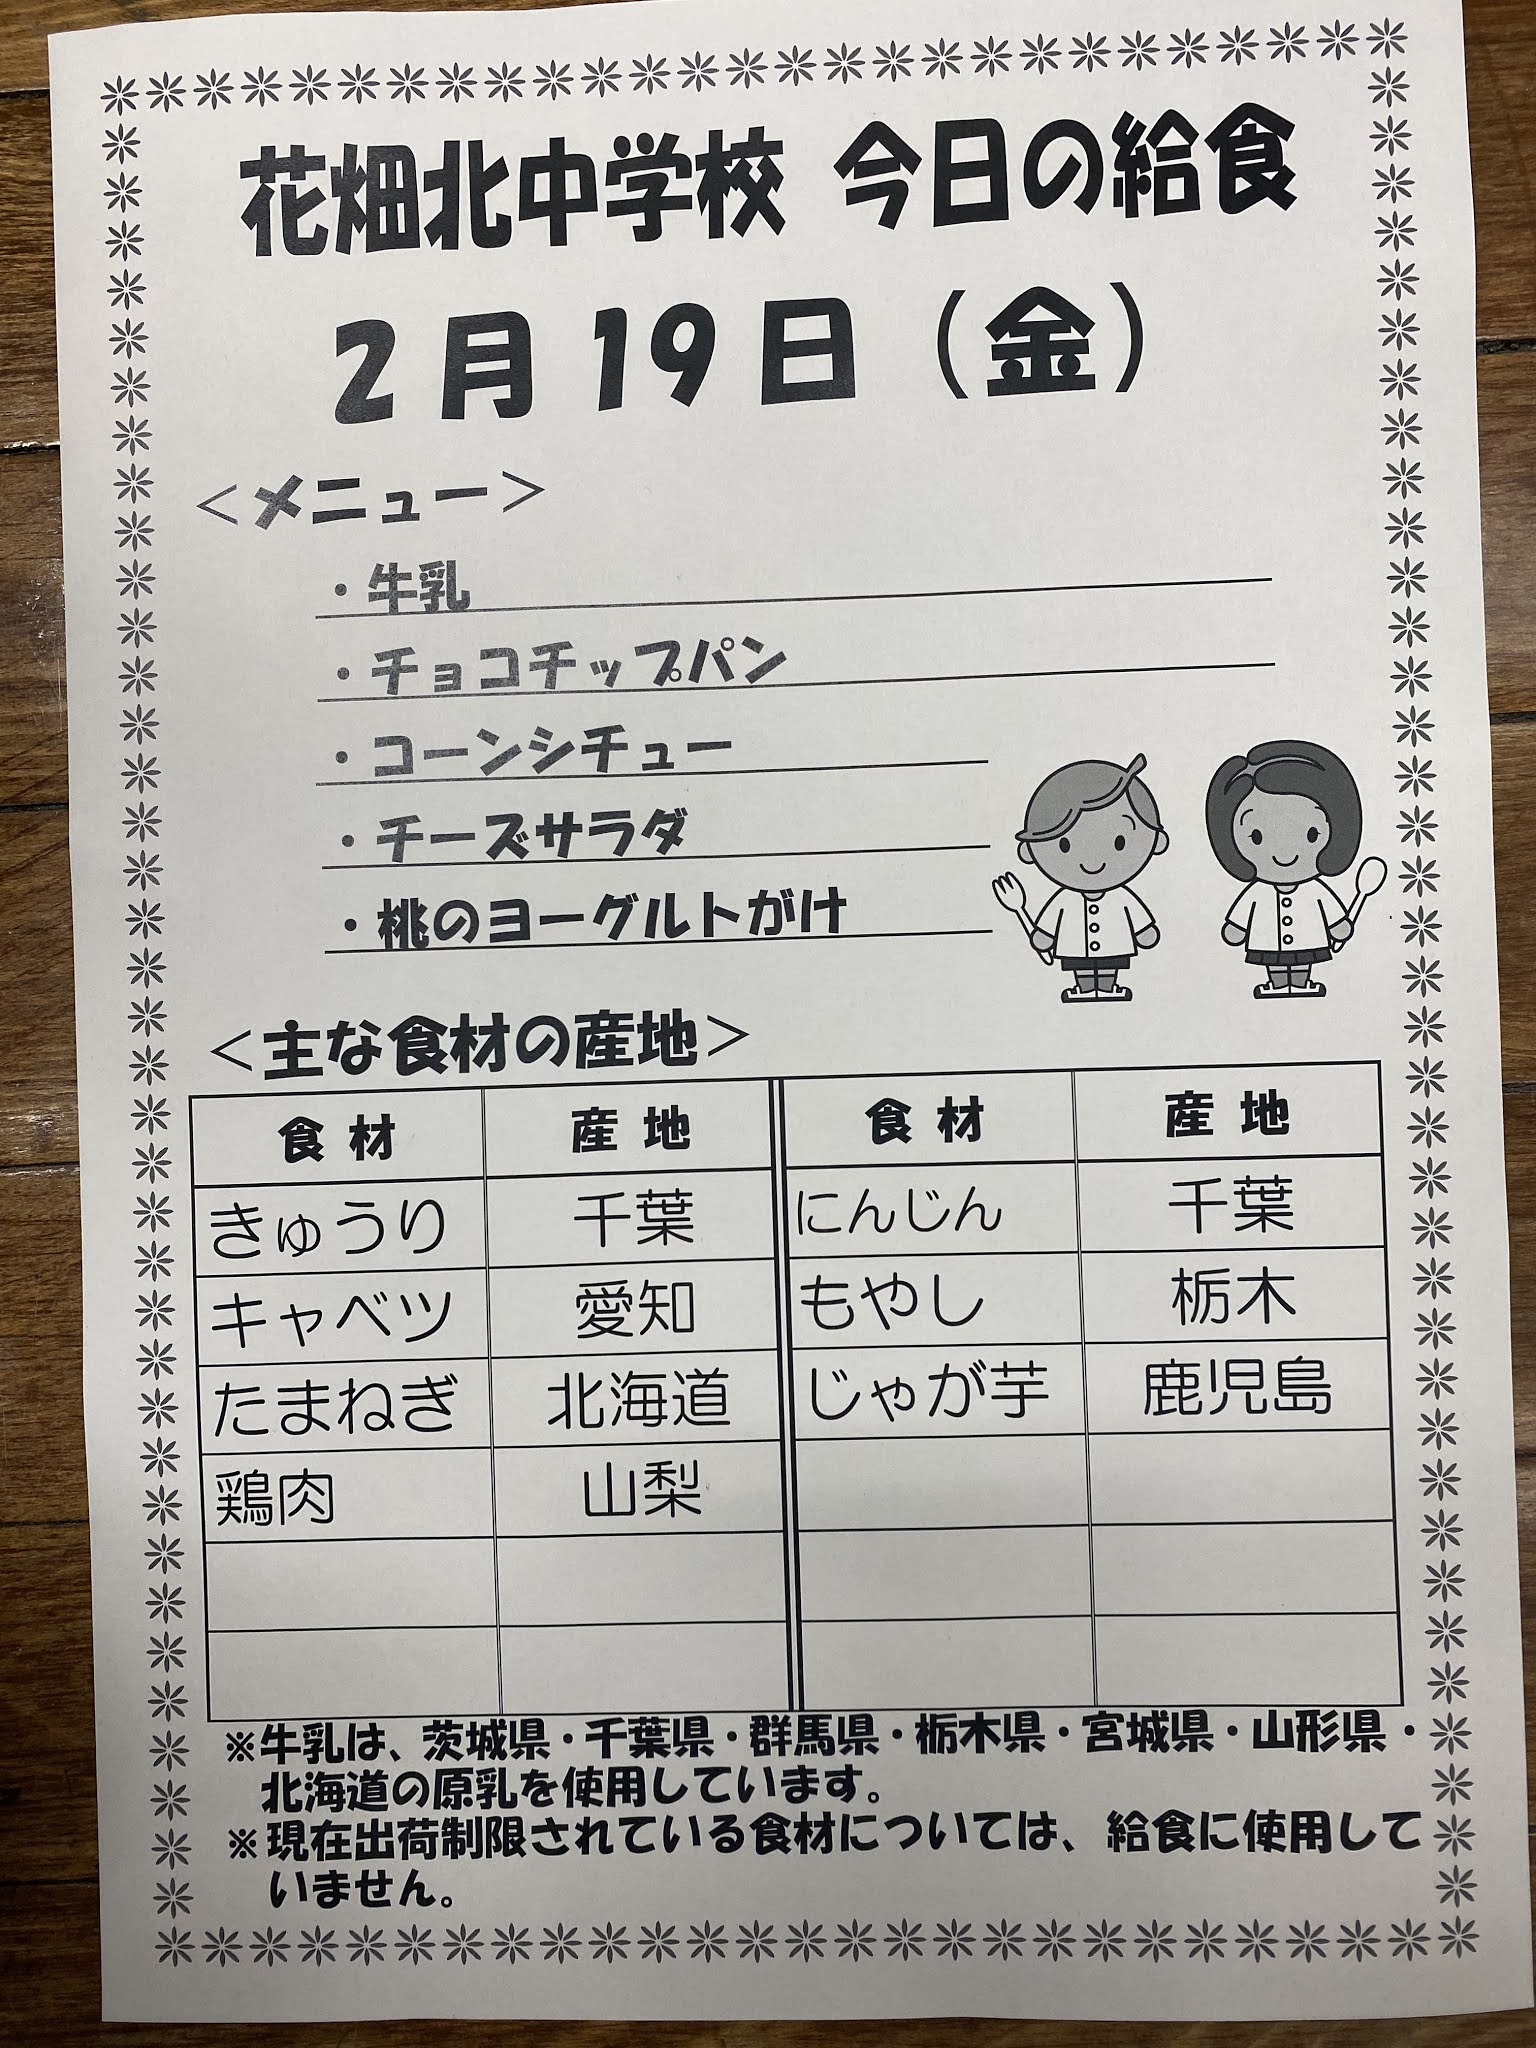 花畑北中学校 今日の給食
2月19日（金）
＜メニュー＞
・牛乳
・チョコチップパン
・コーンシチュー
・チーズサラダ
・桃のヨーグルトがけ
＜主な食材の産地＞
食材 産地 食材 産地
きゅうり 千葉 にんじん 千葉
キャベツ 愛知 もやし 栃木
たまねぎ 北海道 じゃが芋 鹿児島
鶏肉 山梨
※牛乳は、茨城県・千葉県・群馬県・栃木県・宮城県・山形県・
北海道の原乳を使用しています。
※現在出荷制限されている食材については、給食に使用して
いません。